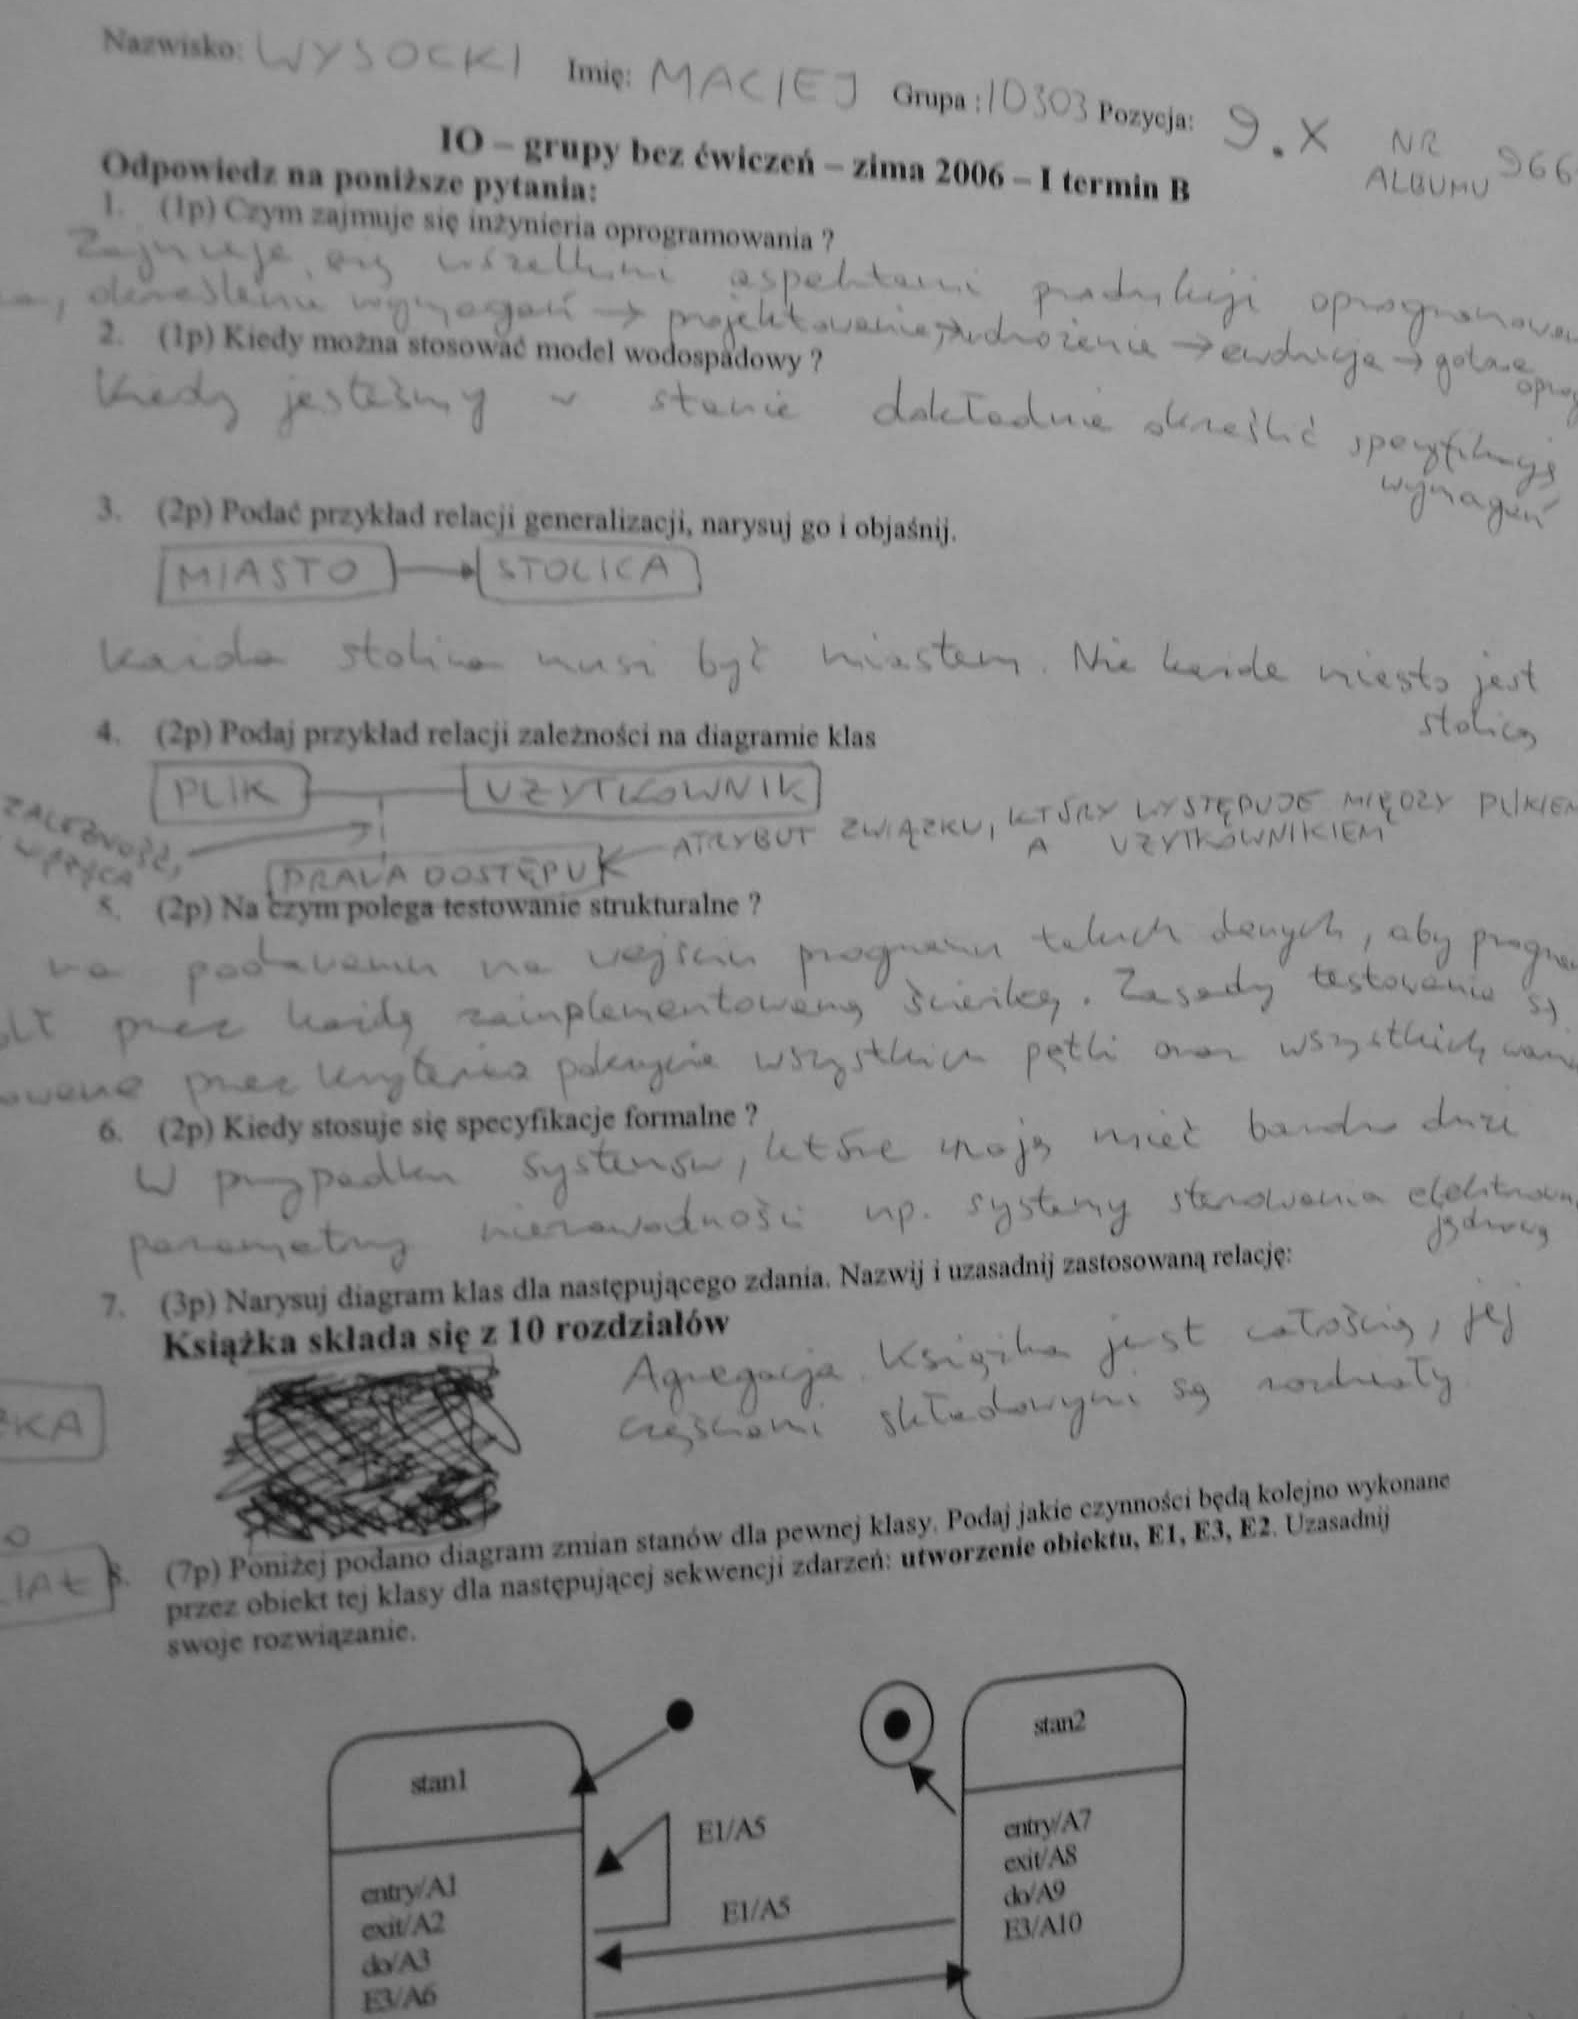 Nazwisko: WYSOCKI Imię: MACIEJ Grupa : ID303 Pozycja: 9.X NR ALBUMU 966
IO – grupy bez ćwiczeń – zima 2006 – I termin B
Odpowiedz na poniższe pytania:
1. (1p) Czym zajmuje się inżynieria oprogramowania ?
Zajmuje się wszelkimi aspektami produkcji
określenie wymagań → projektowanie → wdrożenie → ewolucja → gotowe
2. (1p) Kiedy można stosować model wodospadowy ?
Kiedy jesteśmy w stanie dokładnie określić specyfikację
wymagań
3. (2p) Podać przykład relacji generalizacji, narysuj go i objaśnij.
MIASTO STOLICA
Każda stolica musi być miastem. Nie każde miasto jest
stolicą
4. (2p) Podaj przykład relacji zależności na diagramie klas
PLIK UŻYTKOWNIK
ZALEŻNOŚĆ,
ATRYBUT ZWIĄZKU, KTÓRY WYSTĘPUJE MIĘDZY PLIKIEM
A UŻYTKOWNIKIEM
PRAWA DOSTĘPU
5. (2p) Na czym polega testowanie strukturalne ?
na podawaniu na wejściu programu takich danych, aby
przez każdą zaimplementowaną ścieżkę. Zasady testowania są
przez kryteria pokrycia wszystkich pętli oraz wszystkich
6. (2p) Kiedy stosuje się specyfikacje formalne ?
W przypadku systemów, które mają mieć bardzo duże
parametry niezawodności np. systemy sterowania
jądrową
7. (3p) Narysuj diagram klas dla następującego zdania. Nazwij i uzasadnij zastosowaną relację:
Książka składa się z 10 rozdziałów
Agregacja. Książka jest całością, jej
częściami składowymi są rozdziały
ŻKA
IAŁ
8. (7p) Poniżej podano diagram zmian stanów dla pewnej klasy. Podaj jakie czynności będą kolejno wykonane
przez obiekt tej klasy dla następującej sekwencji zdarzeń: utworzenie obiektu, E1, E3, E2. Uzasadnij
swoje rozwiązanie.
stan1
entry/A1
exit/A2
do/A3
E3/A6
E1/A5
E1/A5
stan2
entry/A7
exit/A8
do/A9
E3/A10